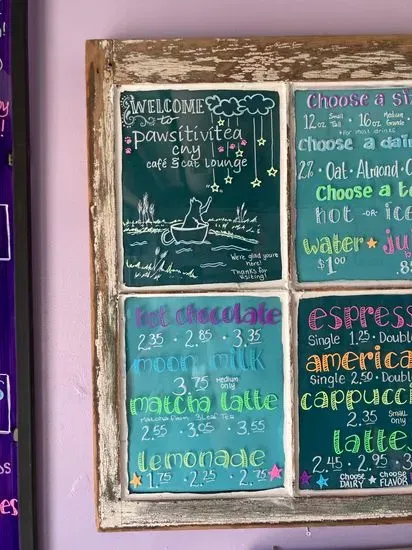 WELCOME
to
Pawsitivitea
cny
café & cat Lounge
We're glad you're
here!
Thanks for
visiting!
Choose a si
12oz Small Tall · 16oz Medium Grande ·
*For most drinks
Choose a dai
2% · Oat · Almond · C
Choose a te
hot -or- ice
water ★ jui
$1.00
hot chocolate
2.35 · 2.85 · 3.35
moon milk
3.75 Medium only
matcha latte
Matcha from 3Leaf Tea
2.55 · 3.05 · 3.55
lemonade
1.75 · 2.25 · 2.75
espress
Single 1.25 · Doubl
america
Single 2.50 · Doubl
cappucc
2.35 Small only
latte
2.45 · 2.95 · 3
CHOOSE DAIRY CHOOSE FLAVOR